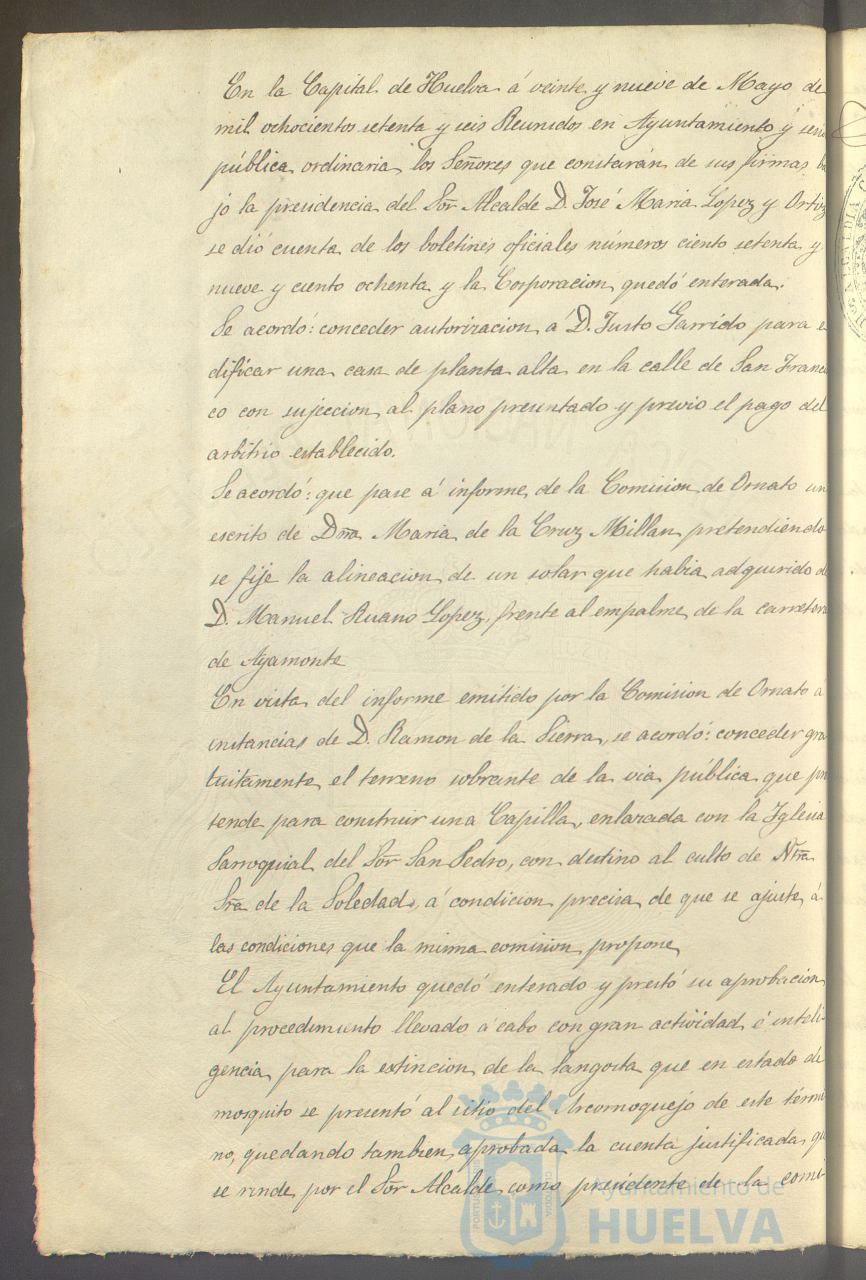 En la Capital de Huelva á veinte y nueve de Mayo de
mil ochocientos setenta y seis Reunidos en Ayuntamiento y
pública ordinaria los Señores que constarán de sus firmas ba
jo la presidencia del Sor Alcalde D. José Maria Lopez y Ortiz
se dió cuenta de los boletines oficiales números ciento setenta y
nueve y ciento ochenta y la Corporacion quedó enterada.
Se acordó: conceder autorizacion á D. Justo Garrido para e
dificar una casa de planta alta en la calle de San Francis
co con sujeccion al plano presentado y previo el pago del
arbitrio establecido.
Se acordó: que pase á informe de la Comision de Ornato un
escrito de Dña Maria de la Cruz Millan pretendiendo
se fije la alineacion de un solar que habia adquirido de
D. Manuel Ruano Lopez, frente al empalme de la carretera
de Ayamonte
En vista del informe emitido por la Comision de Ornato á
instancias de D. Ramon de la Sierra, se acordó: conceder gra
tuitamente el terreno sobrante de la via pública que pre
tende para construir una Capilla, enlazada con la Iglesia
Parroquial del Sor San Pedro, con destino al culto de Ntra
Sra de la Soledad, á condicion precisa de que se ajuste á
las condiciones que la misma comision propone
El Ayuntamiento quedó enterado y prestó su aprobacion
al procedimiento llevado á cabo con gran actividad é inteli-
gencia para la extincion de la langosta que en estado de
mosquito se presentó al sitio del de este térmi
no, quedando tambien aprobada la cuenta justificada qe
se rinde por el Sor Alcalde como presidente de la comi-
Ayuntamiento de
HUELVA